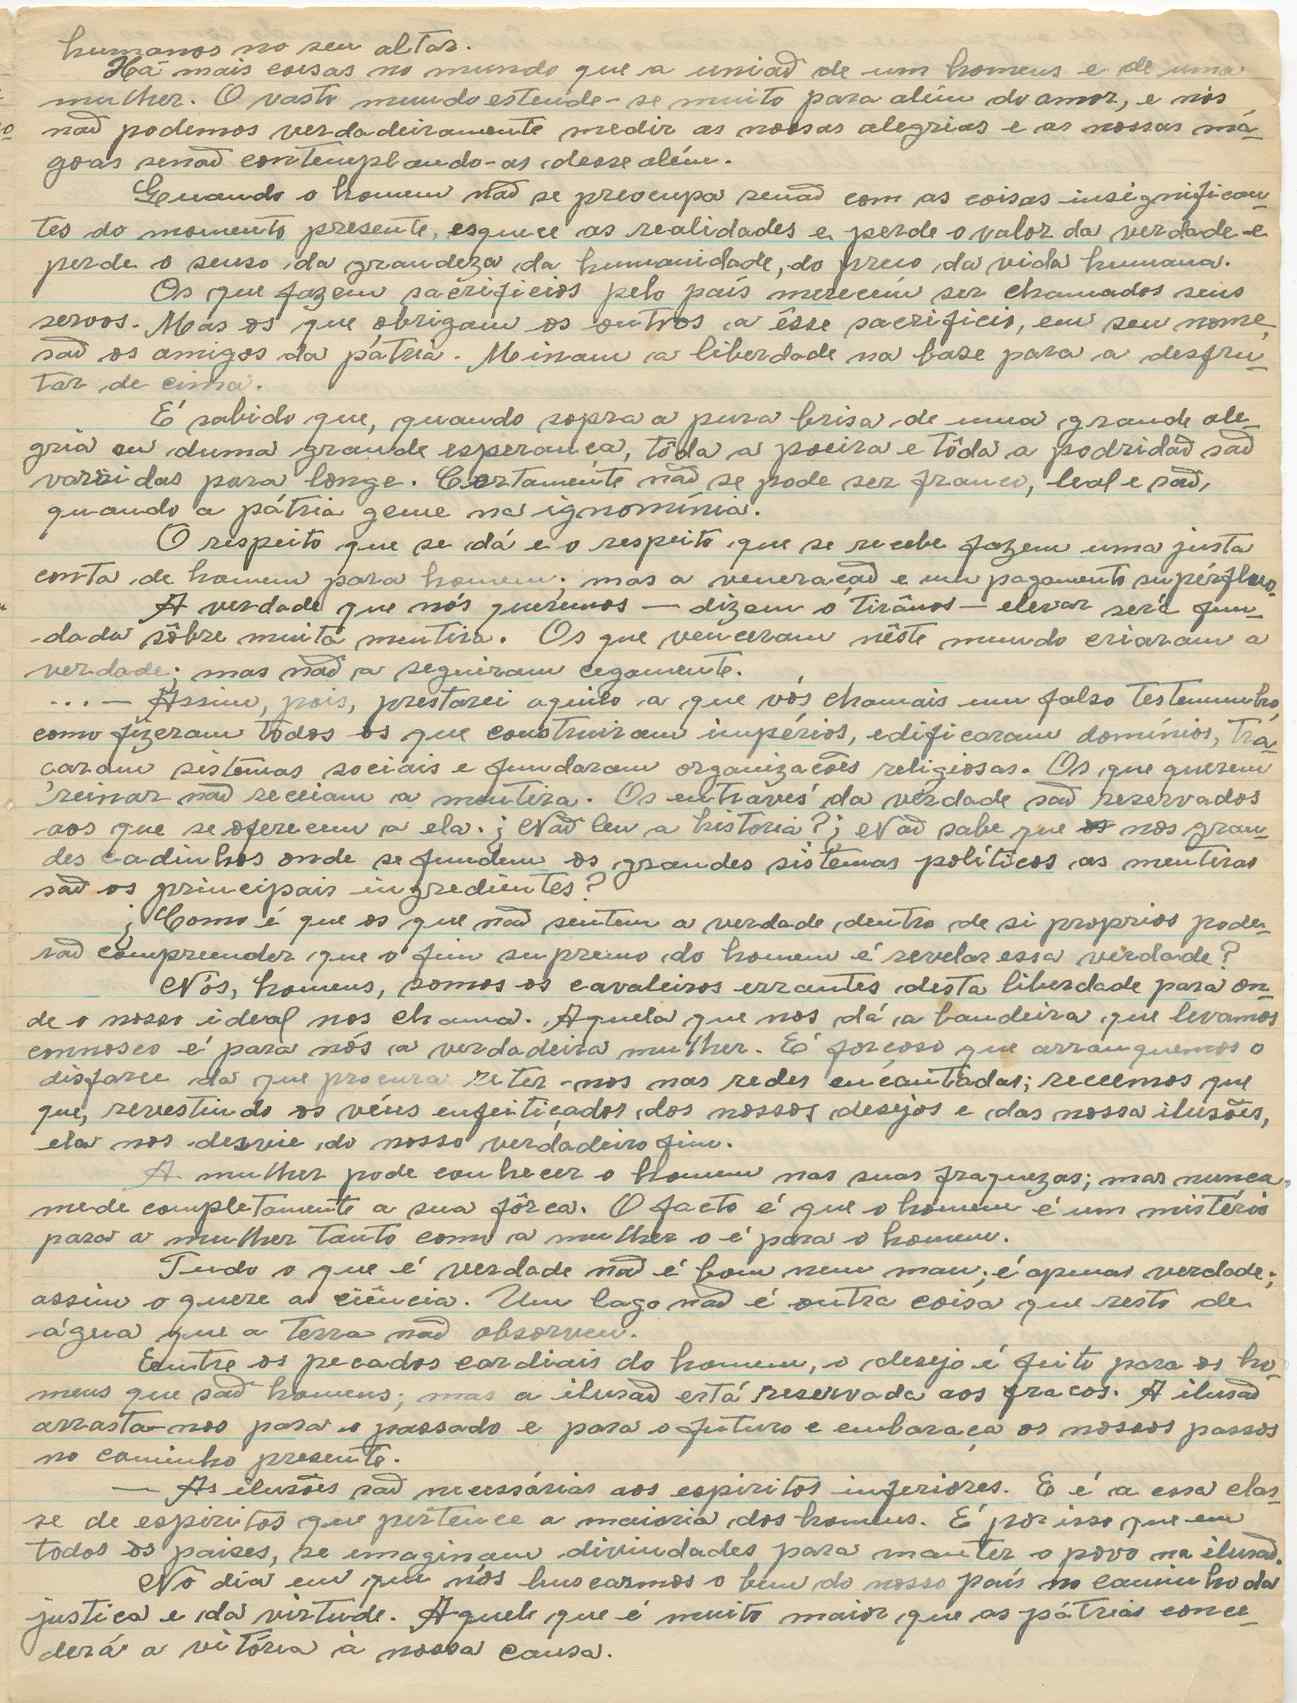 humanos no seu altar.
Há mais coisas no mundo que a uniaõ de um homens e de uma
mulher. O vasto mundo estende-se muito para além do amor, e nós
naõ podemos verdadeiramente medir as nossas alegrias e as nossas má-
goas senaõ contemplando-as desse além.
Quando o homem naõ se preocupa senaõ com as coisas insignifican-
tes do momento presente, esquece as realidades e perde o valor da verdade e
perde o senso da grandeza da humanidade, do preço da vida humana.
Os que fazem sacrificios pelo país merecem ser chamados seus
servos. Mas os que obrigam os outros a êsse sacrificio, em seu nome,
saõ os amigos da pátria. Minam a liberdade na base para a desfru-
tar de cima.
É sabido que, quando sopra a pura brisa de uma grande ale-
gria ou duma grande esperança, tôda a poeira e tôda a podridaõ saõ
varridas para longe. Certamente naõ se pode ser franco, leal e saõ,
quando a pátria geme na ignomínia.
O respeito que se dá e o respeito que se recebe fazem uma justa
conta de homem para homem; mas a veneraçaõ e um pagamento supérfluo.
A verdade que nós queremos — dizem o tirânos — elevar será fun-
dada sôbre muita mentira. Os que venceram nêste mundo criaram a
verdade; mas naõ a seguiram cegamente.
... — Assim, pois, prestarei aquilo a que vós chamais um falso testemunho,
como fizeram todos os que construiram impérios, edificaram domínios, tra-
çaram sistemas sociais e fundaram organizações religiosas. Os que querem
reinar naõ receiam a mentira. Os entráves da verdade saõ reservados
aos que se oferecem a ela. ¿ Naõ leu a historia? ¿ Naõ sabe que nos gran-
des cadinhos onde se fundem os grandes sistemas políticos as mentiras
saõ os principais ingredientes?
¿ Como é que os que naõ sentem a verdade dentro de si proprios pode-
raõ compreender que o fim supremo do homem é revelar essa verdade?
Nós, homens, somos os cavaleiros errantes desta liberdade para on-
de o nosso ideal nos chama. Aquela que nos dá a bandeira que levamos
connosco é para nós a verdadeira mulher. É forçoso que arranquemos o
disfarce da que procura reter-nos nas redes encantadas; receemos que
que, revestindo os véus enfeitiçados dos nossos desejos e das nossa ilusões,
ela nos desvie do nosso verdadeiro fim.
A mulher pode conhecer o homem nas suas fraquezas; mas nunca
mede completamente a sua fôrça. O facto é que o homem é um mistério
para a mulher tanto como a mulher o é para o homem.
Tudo o que é verdade naõ é bom nem mau; é apenas verdade;
assim o quere a ciência. Um lago naõ é outra coisa que resto de
água que a terra naõ absorveu.
Entre os pecados cardiais do homem, o desejo é feito para os ho-
mens que saõ homens; mas a ilusaõ está reservada aos fracos. A ilusaõ
arrasta-nos para o passado e para o futuro e embaraça os nossos passos
no caminho presente.
— As ilusões saõ necessárias aos espiritos inferiores. E é a essa clas-
se de espiritos que pertence a maioria dos homens. É por isso que em
todos os paises, se imaginam divindades para manter o povo na ilusaõ.
No dia em que nós buscarmos o bem do nosso país no caminho da
justiça e da virtude. Aquele que é muito maior que as pátrias conce-
derá a vitória à nossa causa.